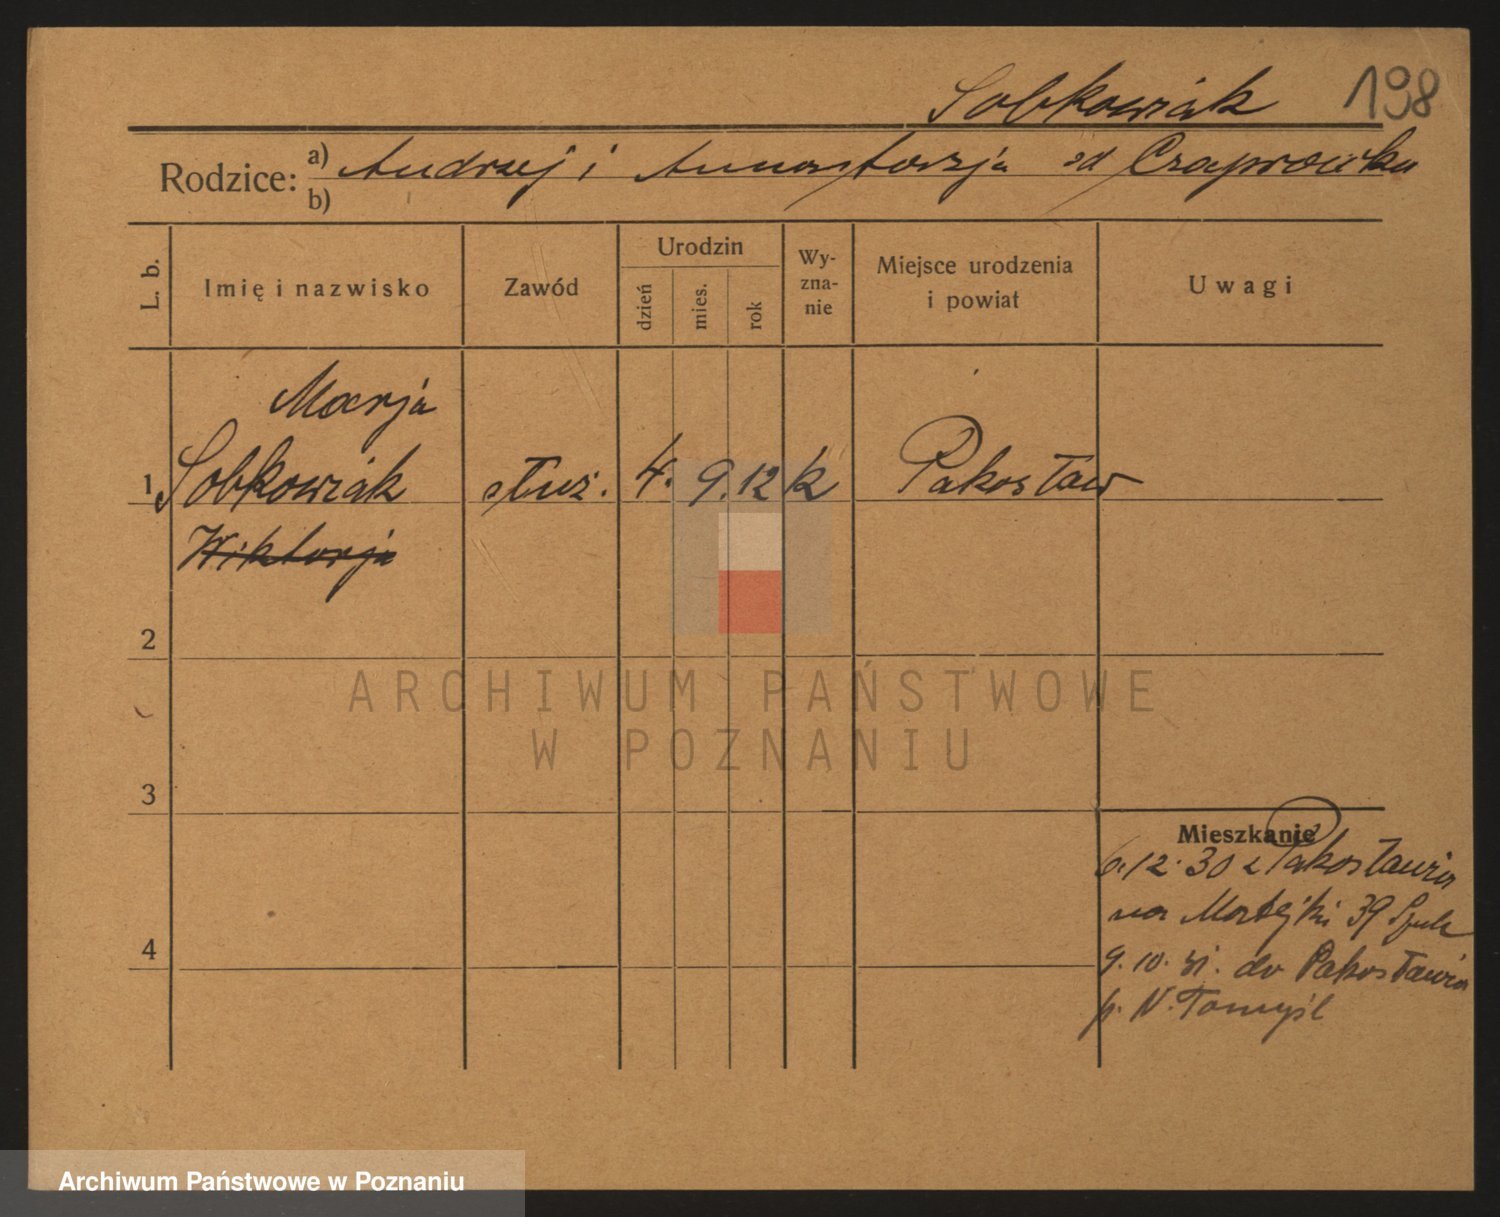 Sobkowiak 198
Rodzice: a) Andrzej i Anastazja od
b)
L. b.
Imię i nazwisko
Zawód
Urodzin
dzień
mies.
rok
Wy-
zna-
nie
Miejsce urodzenia
i powiat
Uwagi
Marja
1 Sobkowiak służ. 4. 9. 12 k Pakosław
Wiktorja
2
ARCHIWUM PAŃSTWOWE
W POZNANIU
3
Mieszkanie
6.12.30 z Pakosławia
na Matejki 39
9.10.31. do Pakosławia
p. N. Tomyśl
4
Archiwum Państwowe w Poznaniu